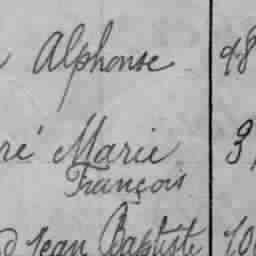 Alphonse 98
ré Marie 3
François
d Jean Baptiste 10